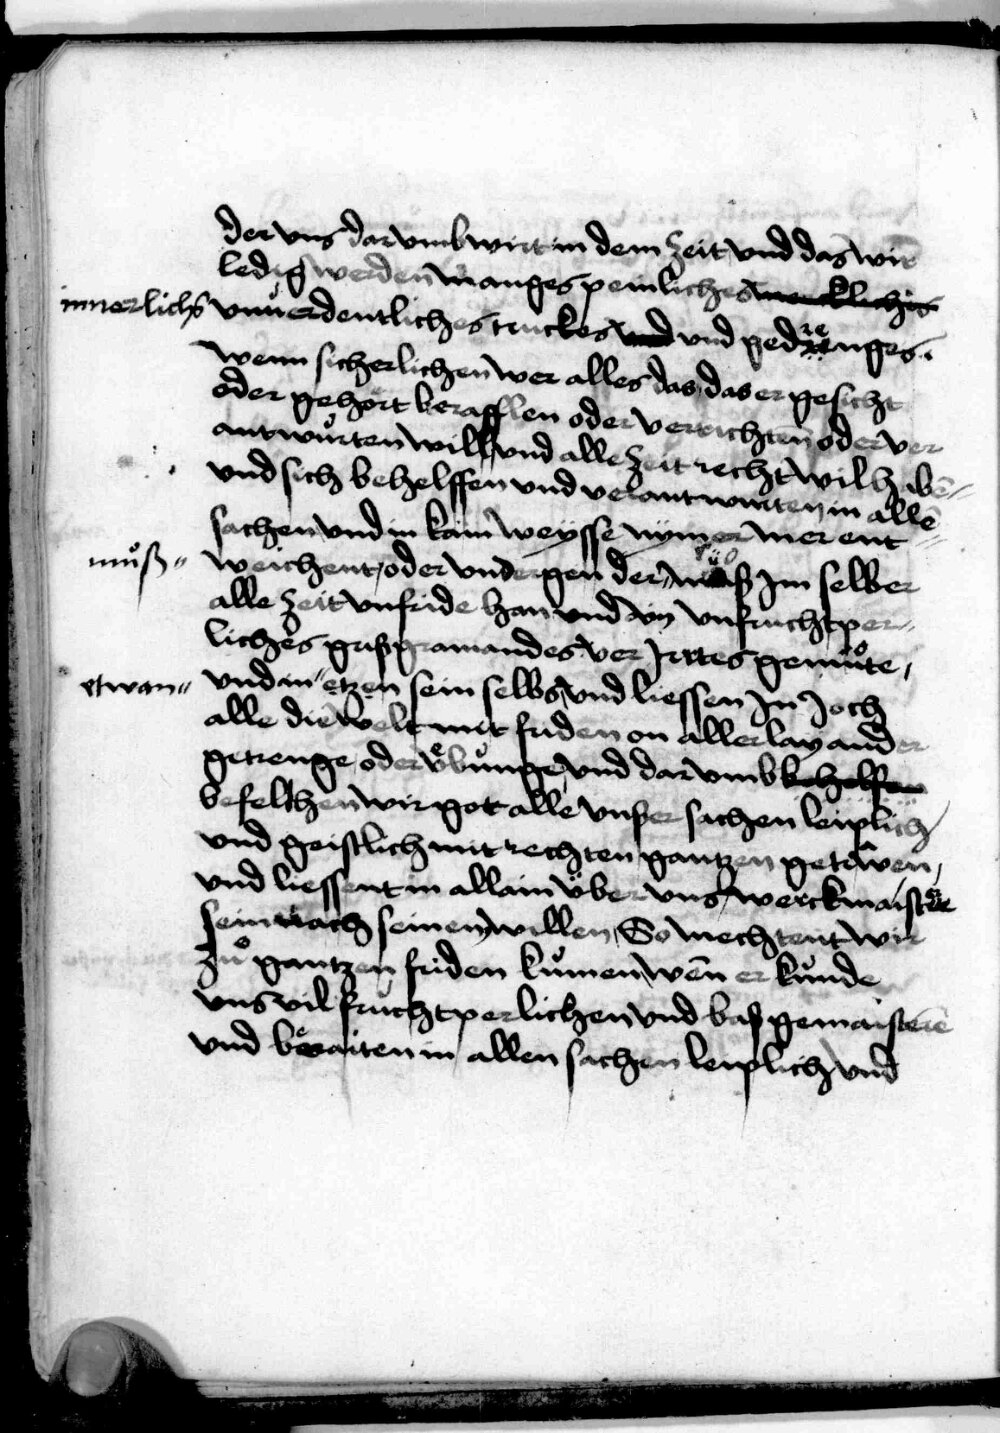 der vns dar vmb wirt in dem zeit vnd das wir
ledig werden manges peinliches mercklichs
innerlichs vnuerdentliches truckes vnd vnd gedrenges.
wenn sicherlichen wer alles das das er gesicht
oder gehört berafflen oder verrichten oder ver
antwůrten will vnd alle zeit recht wil haben
vnd sich behelffen vnd verantwurten in allē
sachen vnd in kain weysse nymer mer ent
můß weichent oder vndergen der Im selber
alle zeit vnfride han vnd ain vnfruchtper
liches grißgramandes ver Irrtes gemůte,
etwan vnd in etzen sein selbs vnd liessen In Joch
alle die welt mit friden on allerlay ander
getrenge oder vͤbunge vnd dar vmb behelfen
befelhen wir got alle vnßer sachen leiplich
vnd geistlich mit rechten gantzen getrwen,
vnd liessent in allain über vns werckmaister
sein nach seinen willen So mechtent wir
zů gantzen friden kumen wēn er kunde
vns vil fruchtperlichen vnd baß gemaisterē
vnd beraiten in allen sachen leiplich vnd